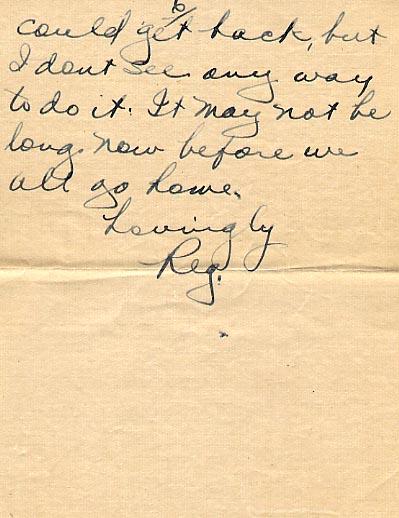 6/
could get back, but
I dont see any way
to do it. It may not be
long now before we
all go home.
Lovingly
Reg.